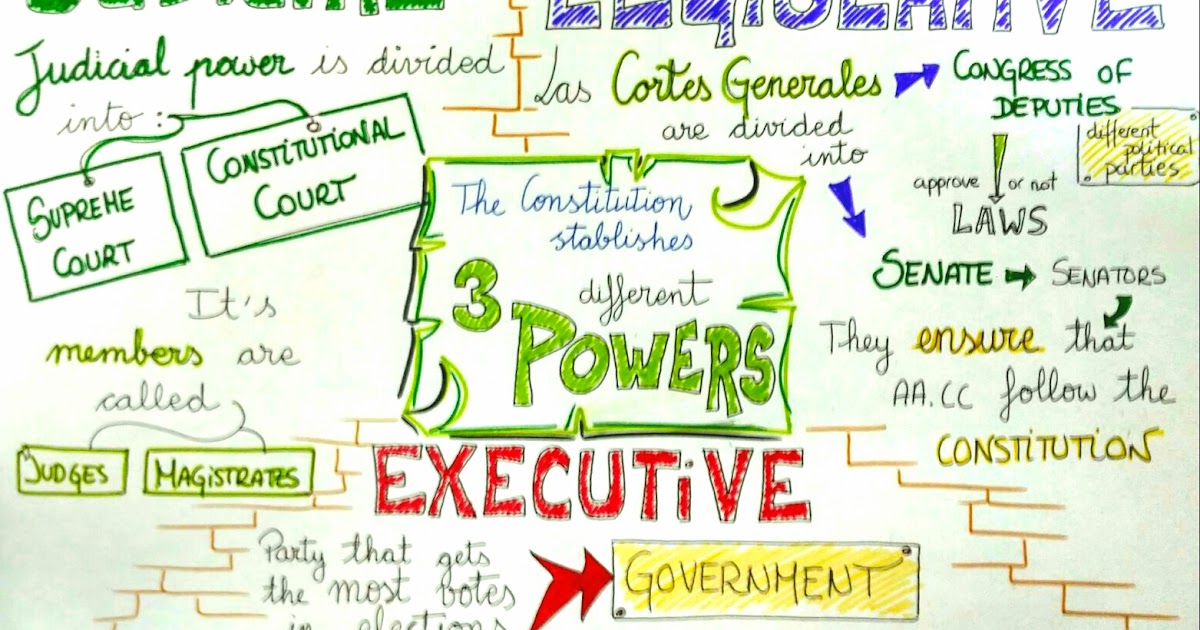 JUDICIAL
LEGISLATIVE
Judicial power is divided
into:
SUPREME
COURT
CONSTITUTIONAL
COURT
It's
members are
called
JUDGES
MAGISTRATES
Las Cortes Generales
are divided
into
CONGRESS OF
DEPUTIES
different
political
parties
approve or not
LAWS
SENATE SENATORS
They ensure that
AA.CC follow the
CONSTITUTION
The Constitution
stablishes
3 different
POWERS
EXECUTiVE
Party that gets
the most botes
in elections
GOVERNMENT